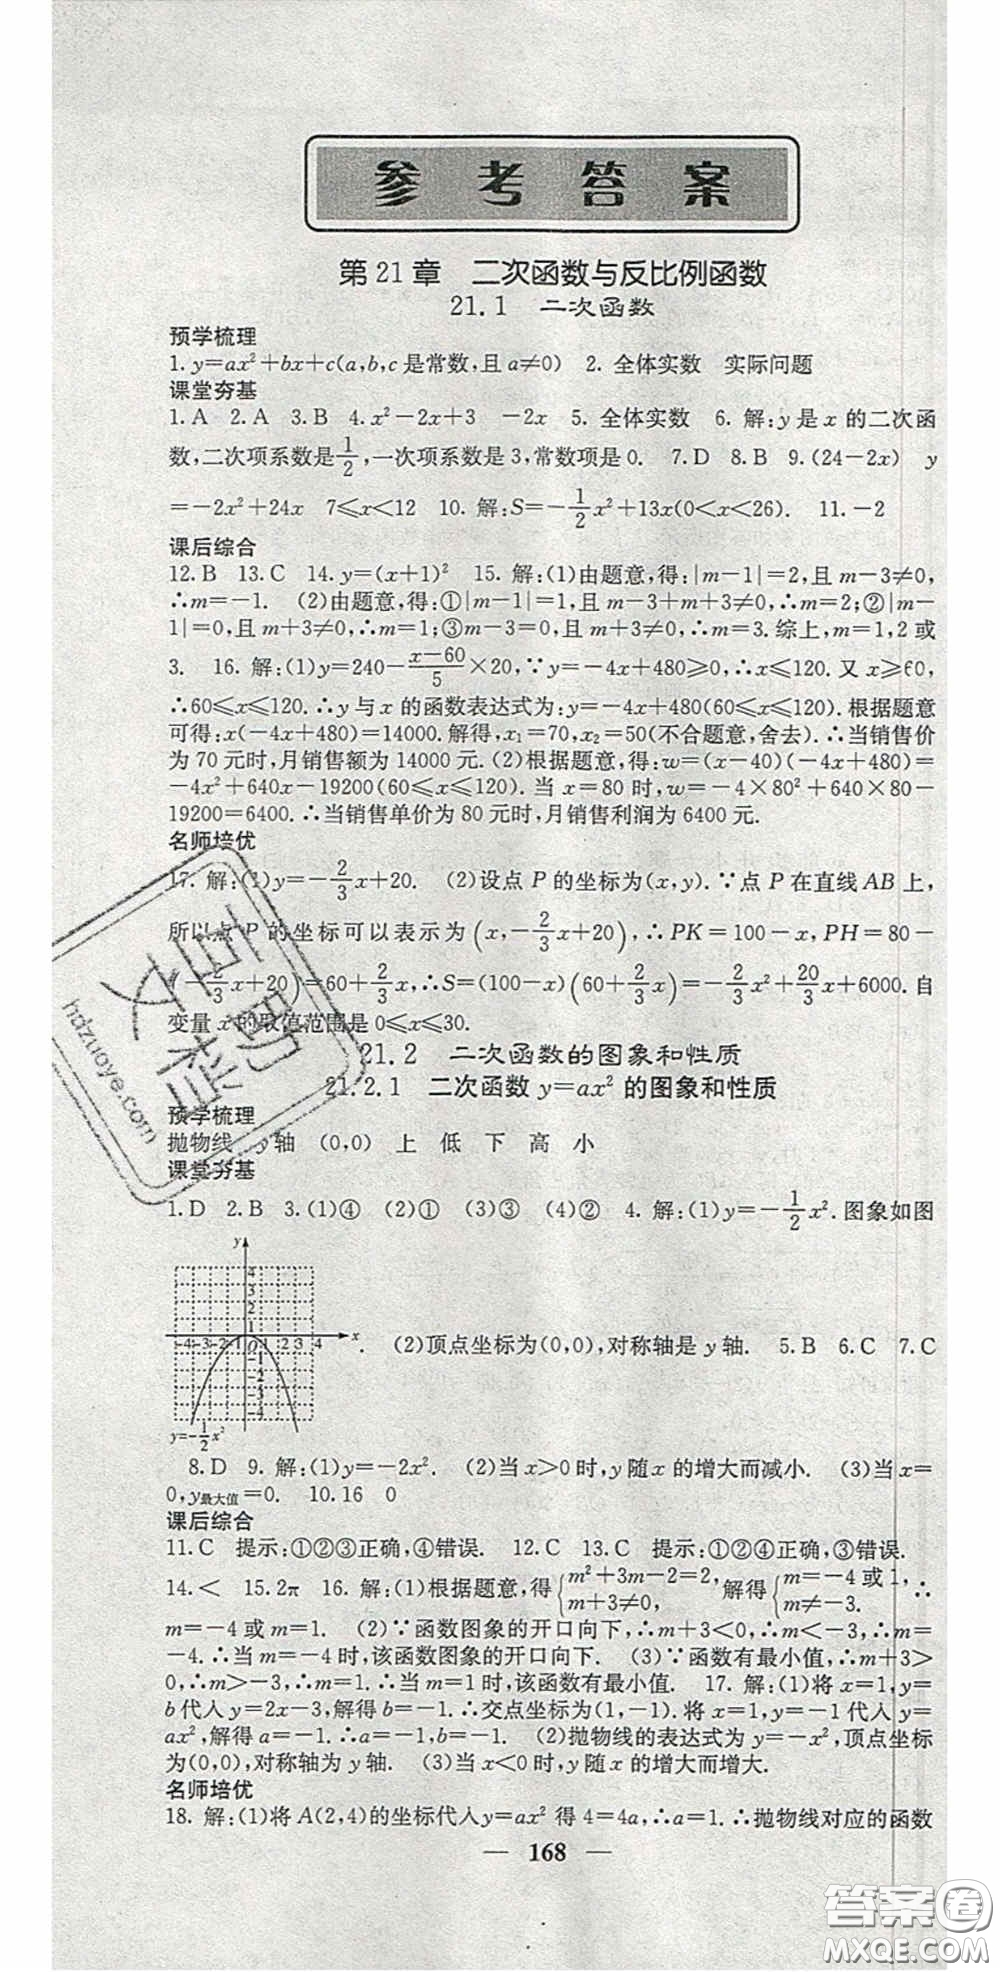 参考答案
第21章 二次函数与反比例函数
21.1 二次函数
预学梳理
1. y=ax²+bx+c(a,b,c是常数,且a≠0) 2. 全体实数 实际问题
课堂夯基
1. A 2. A 3. B 4. x²-2x+3 -2x 5. 全体实数 6. 解:y是x的二次函
数,二次项系数是1/2,一次项系数是3,常数项是0. 7. D 8. B 9. (24-2x) y
=-2x²+24x 7≤x<12 10. 解:S=-1/2x²+13x(0<x<26). 11. -2
课后综合
12. B 13. C 14. y=(x+1)² 15. 解:(1)由题意,得:|m-1|=2,且m-3≠0,
∴m=-1. (2)由题意,得:①|m-1|=1,且m-3+m+3≠0,∴m=2;②|m-
1|=0,且m+3≠0,∴m=1;③m-3=0,且m+3≠0,∴m=3. 综上,m=1,2或
3. 16. 解:(1)y=240-(x-60)/5×20,∵y=-4x+480≥0,∴x≤120. 又x≥60,
∴60≤x≤120. ∴y与x的函数表达式为:y=-4x+480(60≤x≤120). 根据题意
可得:x(-4x+480)=14000. 解得,x₁=70,x₂=50(不合题意,舍去). ∴当销售价
为70元时,月销售额为14000元. (2)根据题意,得:w=(x-40)(-4x+480)=
-4x²+640x-19200(60≤x≤120). 当x=80时,w=-4×80²+640×80-
19200=6400. ∴当销售单价为80元时,月销售利润为6400元.
名师培优
17. 解:(1)y=-2/3x+20. (2)设点P的坐标为(x,y). ∵点P在直线AB上,
所以点P的坐标可以表示为(x,-2/3x+20),∴PK=100-x,PH=80-
(-2/3x+20)=60+2/3x,∴S=(100-x)(60+2/3x)=-2/3x²+20/3x+6000. 自
变量x的取值范围是0≤x≤30.
21.2 二次函数的图象和性质
21.2.1 二次函数y=ax²的图象和性质
预学梳理
抛物线 y轴 (0,0) 上 低 下 高 小
课堂夯基
1. D 2. B 3. (1)④ (2)① (3)③ (4)② 4. 解:(1)y=-1/2x². 图象如图
y
4
3
2
1
-4-3-2-1 O 1 2 3 4 x
-1
-2
-3
-4
y=-1/2x²
. (2)顶点坐标为(0,0),对称轴是y轴. 5. B 6. C 7. C
8. D 9. 解:(1)y=-2x². (2)当x>0时,y随x的增大而减小. (3)当x=
0,y最大值=0. 10. 16 0
课后综合
11. C 提示:①②③正确,④错误. 12. C 13. C 提示:①②④正确,③错误.
14. < 15. 2π 16. 解:(1)根据题意,得{m²+3m-2=2, m+3≠0, 解得{m=-4或1, m≠-3. ∴
m=-4或m=1. (2)∵函数图象的开口向下,∴m+3<0,∴m<-3,∴m=
-4. ∴当m=-4时,该函数图象的开口向下. (3)∵函数有最小值,∴m+3>
0,∴m>-3,∴m=1. ∴当m=1时,该函数有最小值. 17. 解:(1)将x=1,y=
b代入y=2x-3,解得b=-1. ∴交点坐标为(1,-1). 将x=1,y=-1代入y=
ax²,解得a=-1. ∴a=-1,b=-1. (2)抛物线的表达式为y=-x²,顶点坐标
为(0,0),对称轴为y轴. (3)当x<0时,y随x的增大而增大.
名师培优
18. 解:(1)将A(2,4)的坐标代入y=ax²得4=4a,∴a=1. ∴抛物线对应的函数
— 168 —
hdzuoye.com
答案圈
MXQE.COM